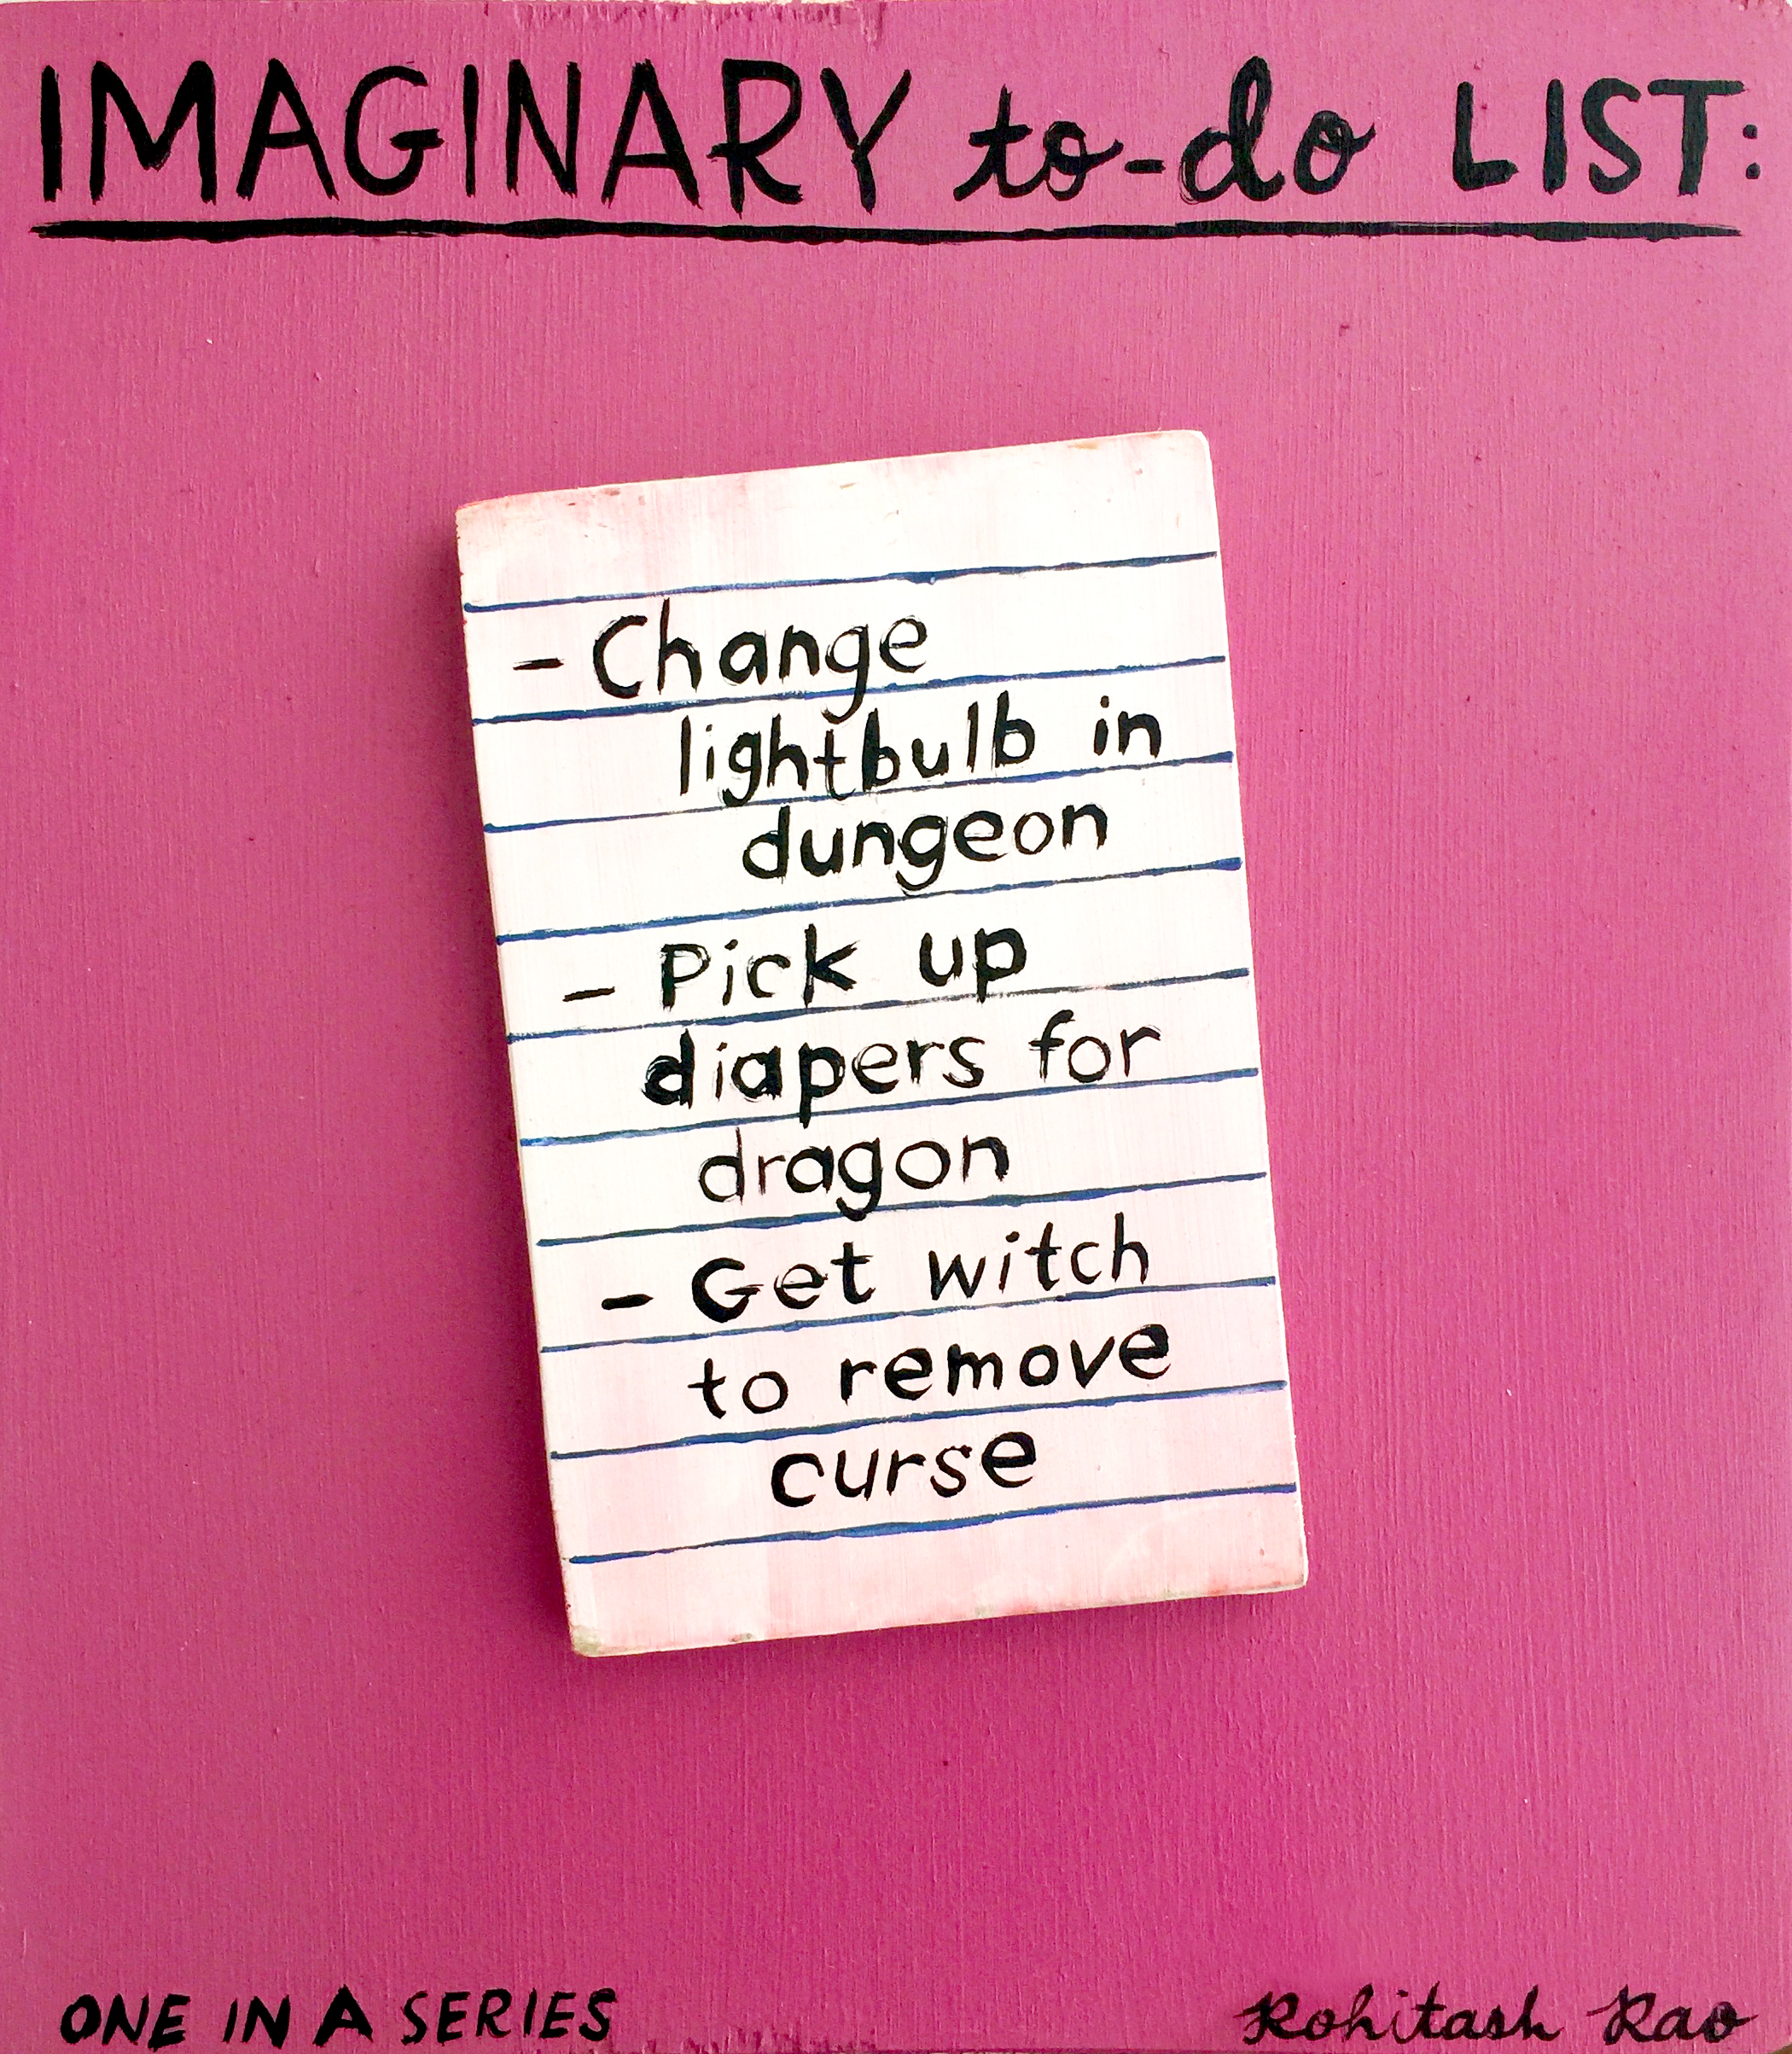 IMAGINARY to-do LIST:
- Change
lightbulb in
dungeon
- Pick up
diapers for
dragon
- Get witch
to remove
curse
ONE IN A SERIES
Rohitash Rao